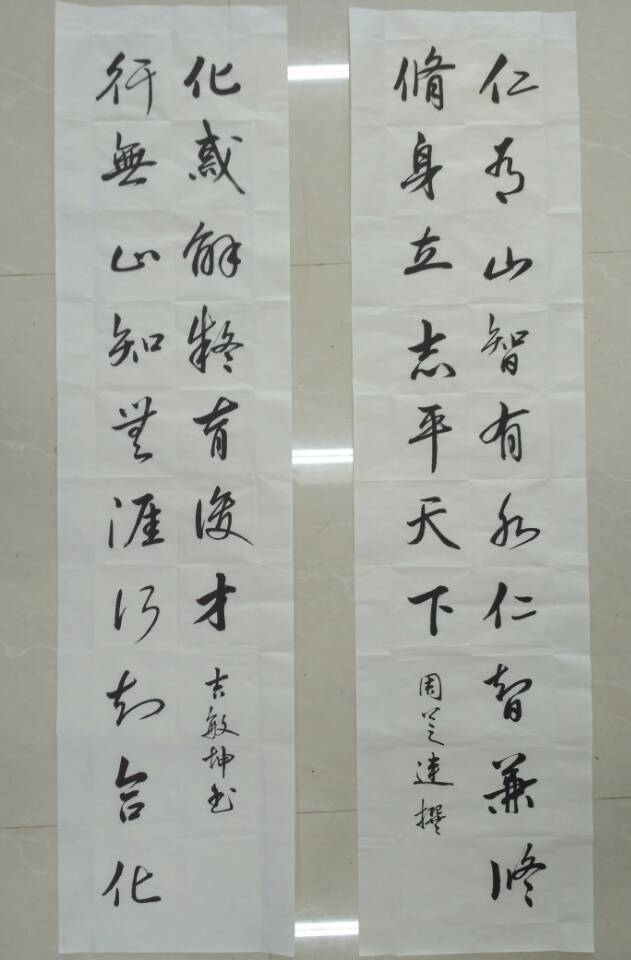 仁有山智有水仁智兼修
脩身立志平天下
周芝連撰
行無止知無涯行知合化
化惑解疑育俊才
吉敏坤书